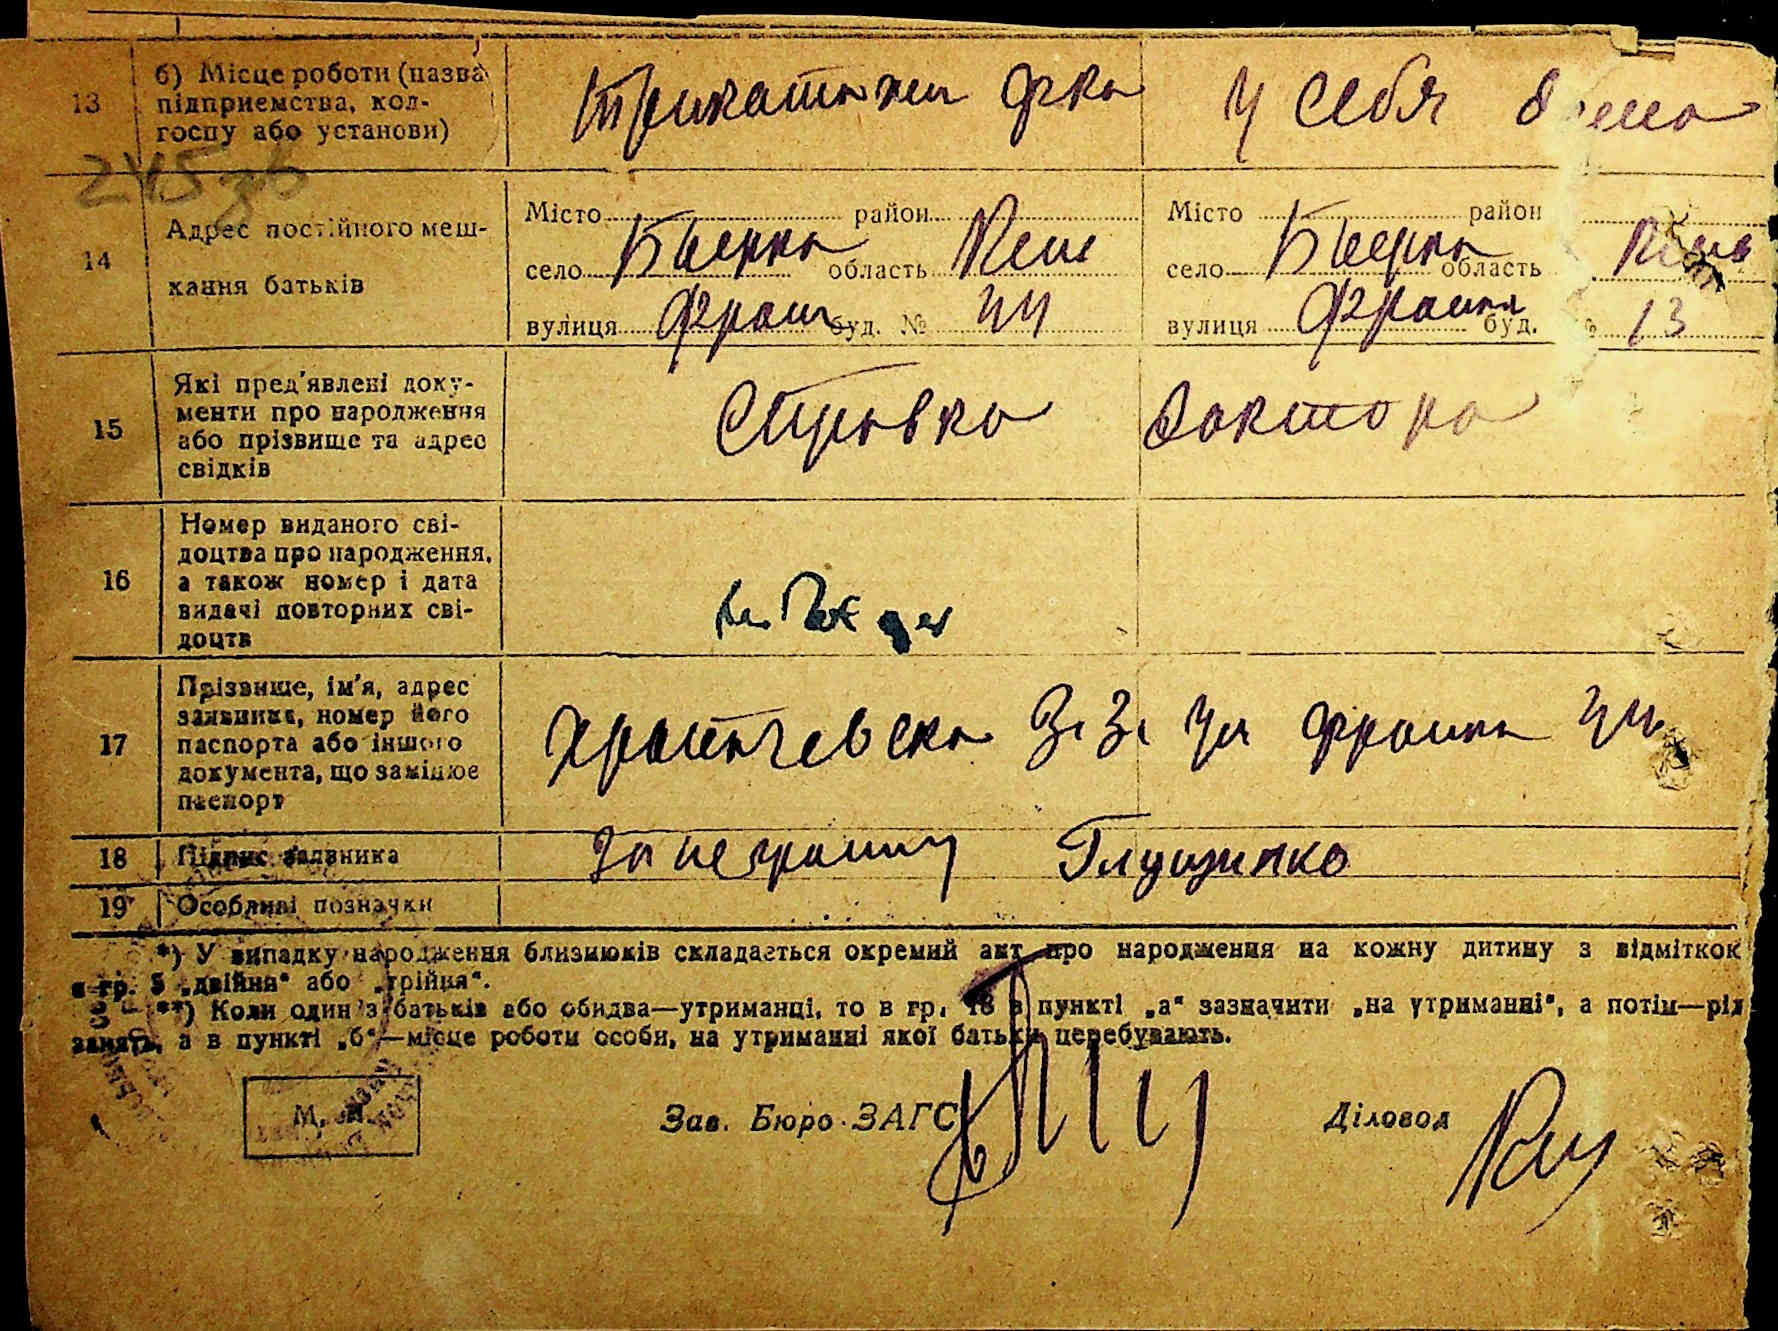 13
б) Місце роботи (назва
підприємства, кол-
госпу або установи)
Трикотажн ф-ка
у себя дома
245
14
Адрес постійного меш-
кання батьків
Місто район
село область
вулиця Франк буд. № 44
Місто район
село область
вулиця Франка буд. № 13
15
Які пред'явлені доку-
менти про народження
або прізвище та адрес
свідків
Справка доктора
16
Номер виданого сві-
доцтва про народження,
а також номер і дата
видачі повторних сві-
доцтв
17
Прізвище, ім'я, адрес
заявника, номер його
паспорта або іншого
документа, що замінює
паспорт
З. З. ул Франка 44
18
Підпис заявника
За неграмну Глущенко
19
Особливі позначки
*) У випадку народження близнюків складається окремий акт про народження на кожну дитину з відміткою
в гр. 5 „двійня" або „трійня".
**) Коли один з батьків або обидва—утриманці, то в гр. 13 в пункті „а" зазначити „на утриманні", а потім—рід
занять, а в пункті „б"—місце роботи особи, на утриманні якої батьки перебувають.
М. П.
Зав. Бюро ЗАГС
Діловод